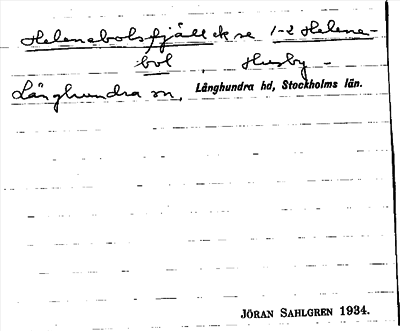 Helenebolsfjäll ck se 1-2 Helene-
bol, Husby-
Långhundra sn, Långhundra hd, Stockholms län.
JÖRAN SAHLGREN 1934.